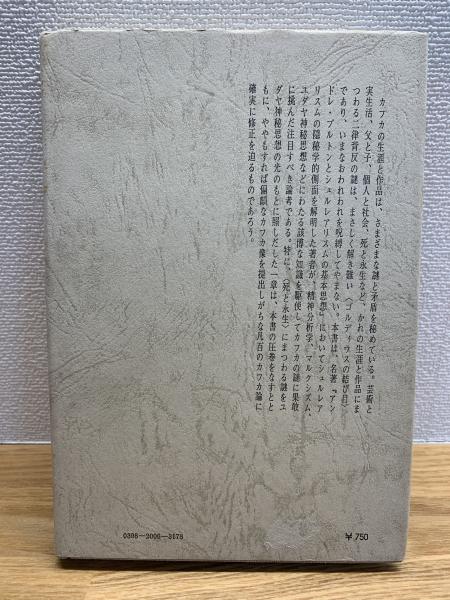 カフカの生涯と作品は、さまざまな謎と矛盾を秘めている。芸術と
実生活、父と子、個人と社会、死と永生など、かれの生涯と作品にま
つわる二律背反の謎は、まさしく解き難い〈ゴルディウスの結び目〉
であり、いまなおわれわれを呪縛してやまない。本書は、名著『アン
ドレ・ブルトンとシュルレアリスムの基本思想』においてシュルレア
リスムの隠秘学的側面を解明した著者が、精神分析学、マルクシズム、
ユダヤ神秘思想などにわたる該博な知識を駆使してカフカの謎に果敢
に挑んだ注目すべき論考である。特に、〈死と永生〉にまつわる謎をユ
ダヤ神秘思想の光のもとに照しだした一章は、本書の圧巻をなすとと
もに、ややもすれば偏頗なカフカ像を提出しがちな凡百のカフカ論に
確実に修正を迫るものであろう。
0398—2006—3178
¥750